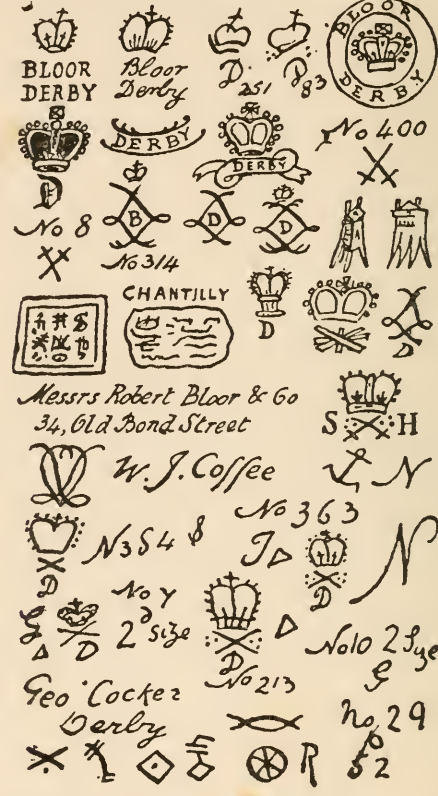 BLOOR
DERBY
Bloor
Derby
D
251
D
83
BLOOR
DERBY
D
DERBY
DERBY
No 400
No 8
B
D
D
No 314
CHANTILLY
D
D
Messrs Robert Bloor & Co
34, Old Bond Street
S H
W. J. Coffee
N
D
N354
No 363
J
D
N
G
D
No Y
2d size
D
No 213
No10 2 Syze
G
Geo Cocker
Derby
no, 29
R
52